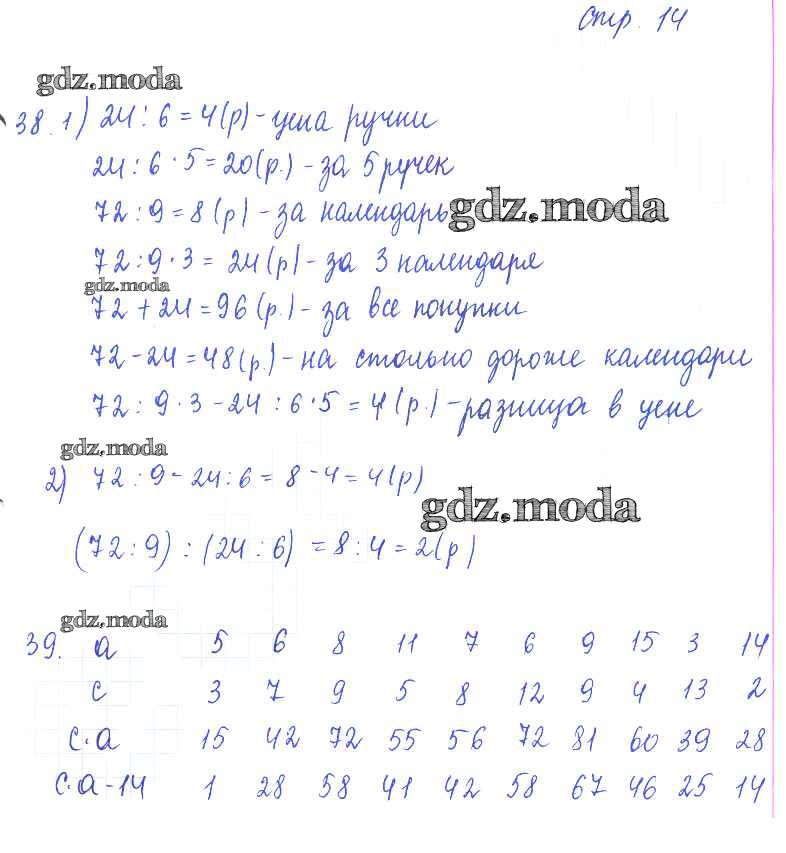 стр. 14
gdz.moda
38. 1) 24 : 6 = 4 (р) - цена ручки
24 : 6 · 5 = 20 (р.) - за 5 ручек
72 : 9 = 8 (р) - за календарь
gdz.moda
72 : 9 · 3 = 24 (р) - за 3 календаря
gdz.moda
72 + 24 = 96 (р.) - за все покупки
72 - 24 = 48 (р.) - на столько дороже календари
72 : 9 · 3 - 24 : 6 · 5 = 4 (р.) - разница в цене
gdz.moda
2) 72 : 9 - 24 : 6 = 8 - 4 = 4 (р)
gdz.moda
(72 : 9) : (24 : 6) = 8 : 4 = 2 (р)
gdz.moda
39. a 5 6 8 11 7 6 9 15 3 14
c 3 7 9 5 8 12 9 4 13 2
c·a 15 42 72 55 56 72 81 60 39 28
c·a - 14 1 28 58 41 42 58 67 46 25 14